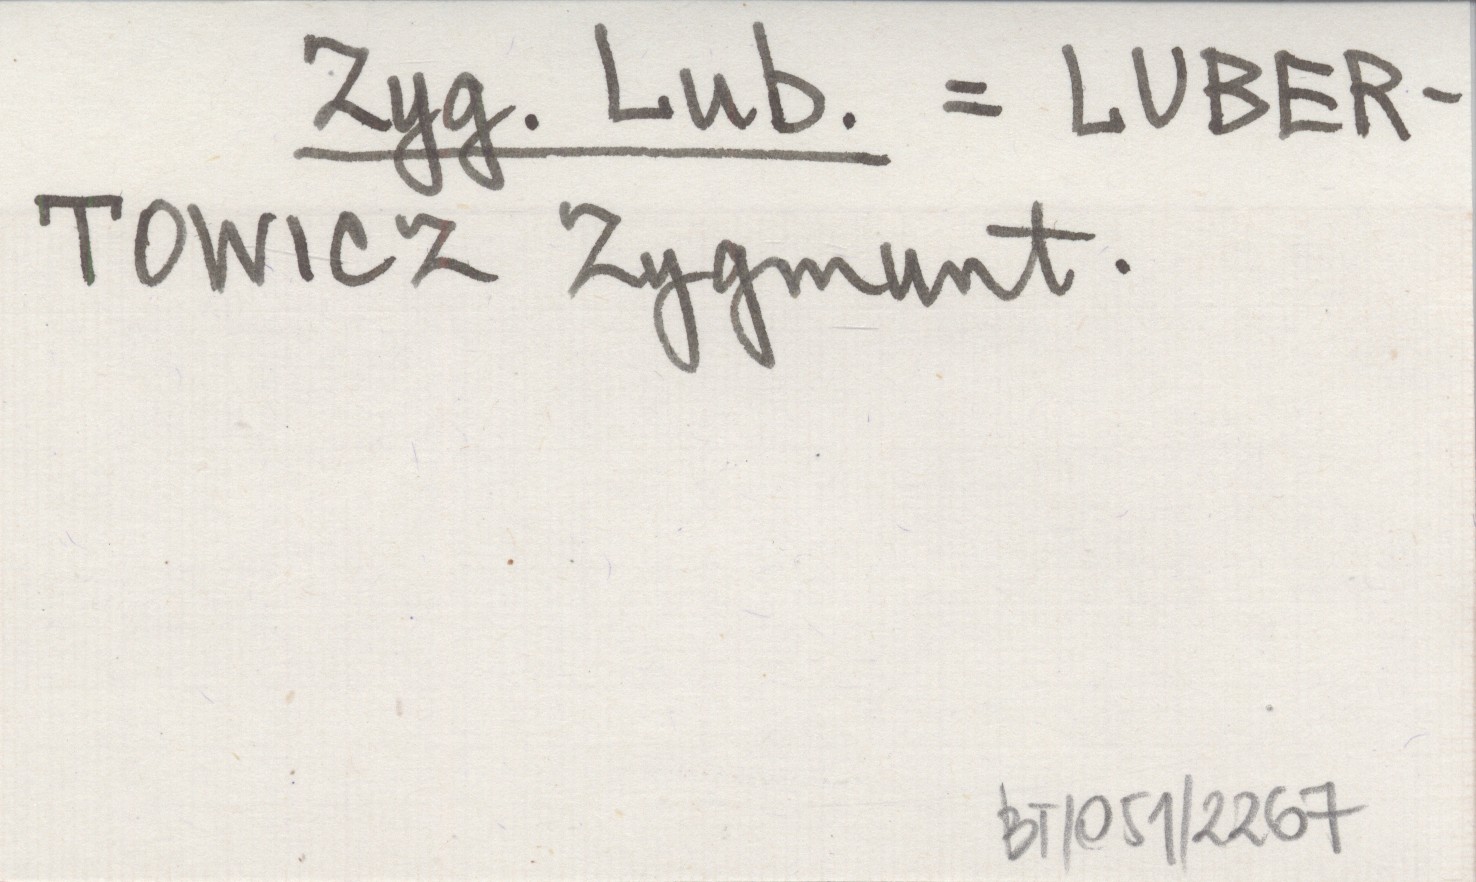 Zyg. Lub. = LUBER-
TOWICZ Zygmunt.
BT/051/2267